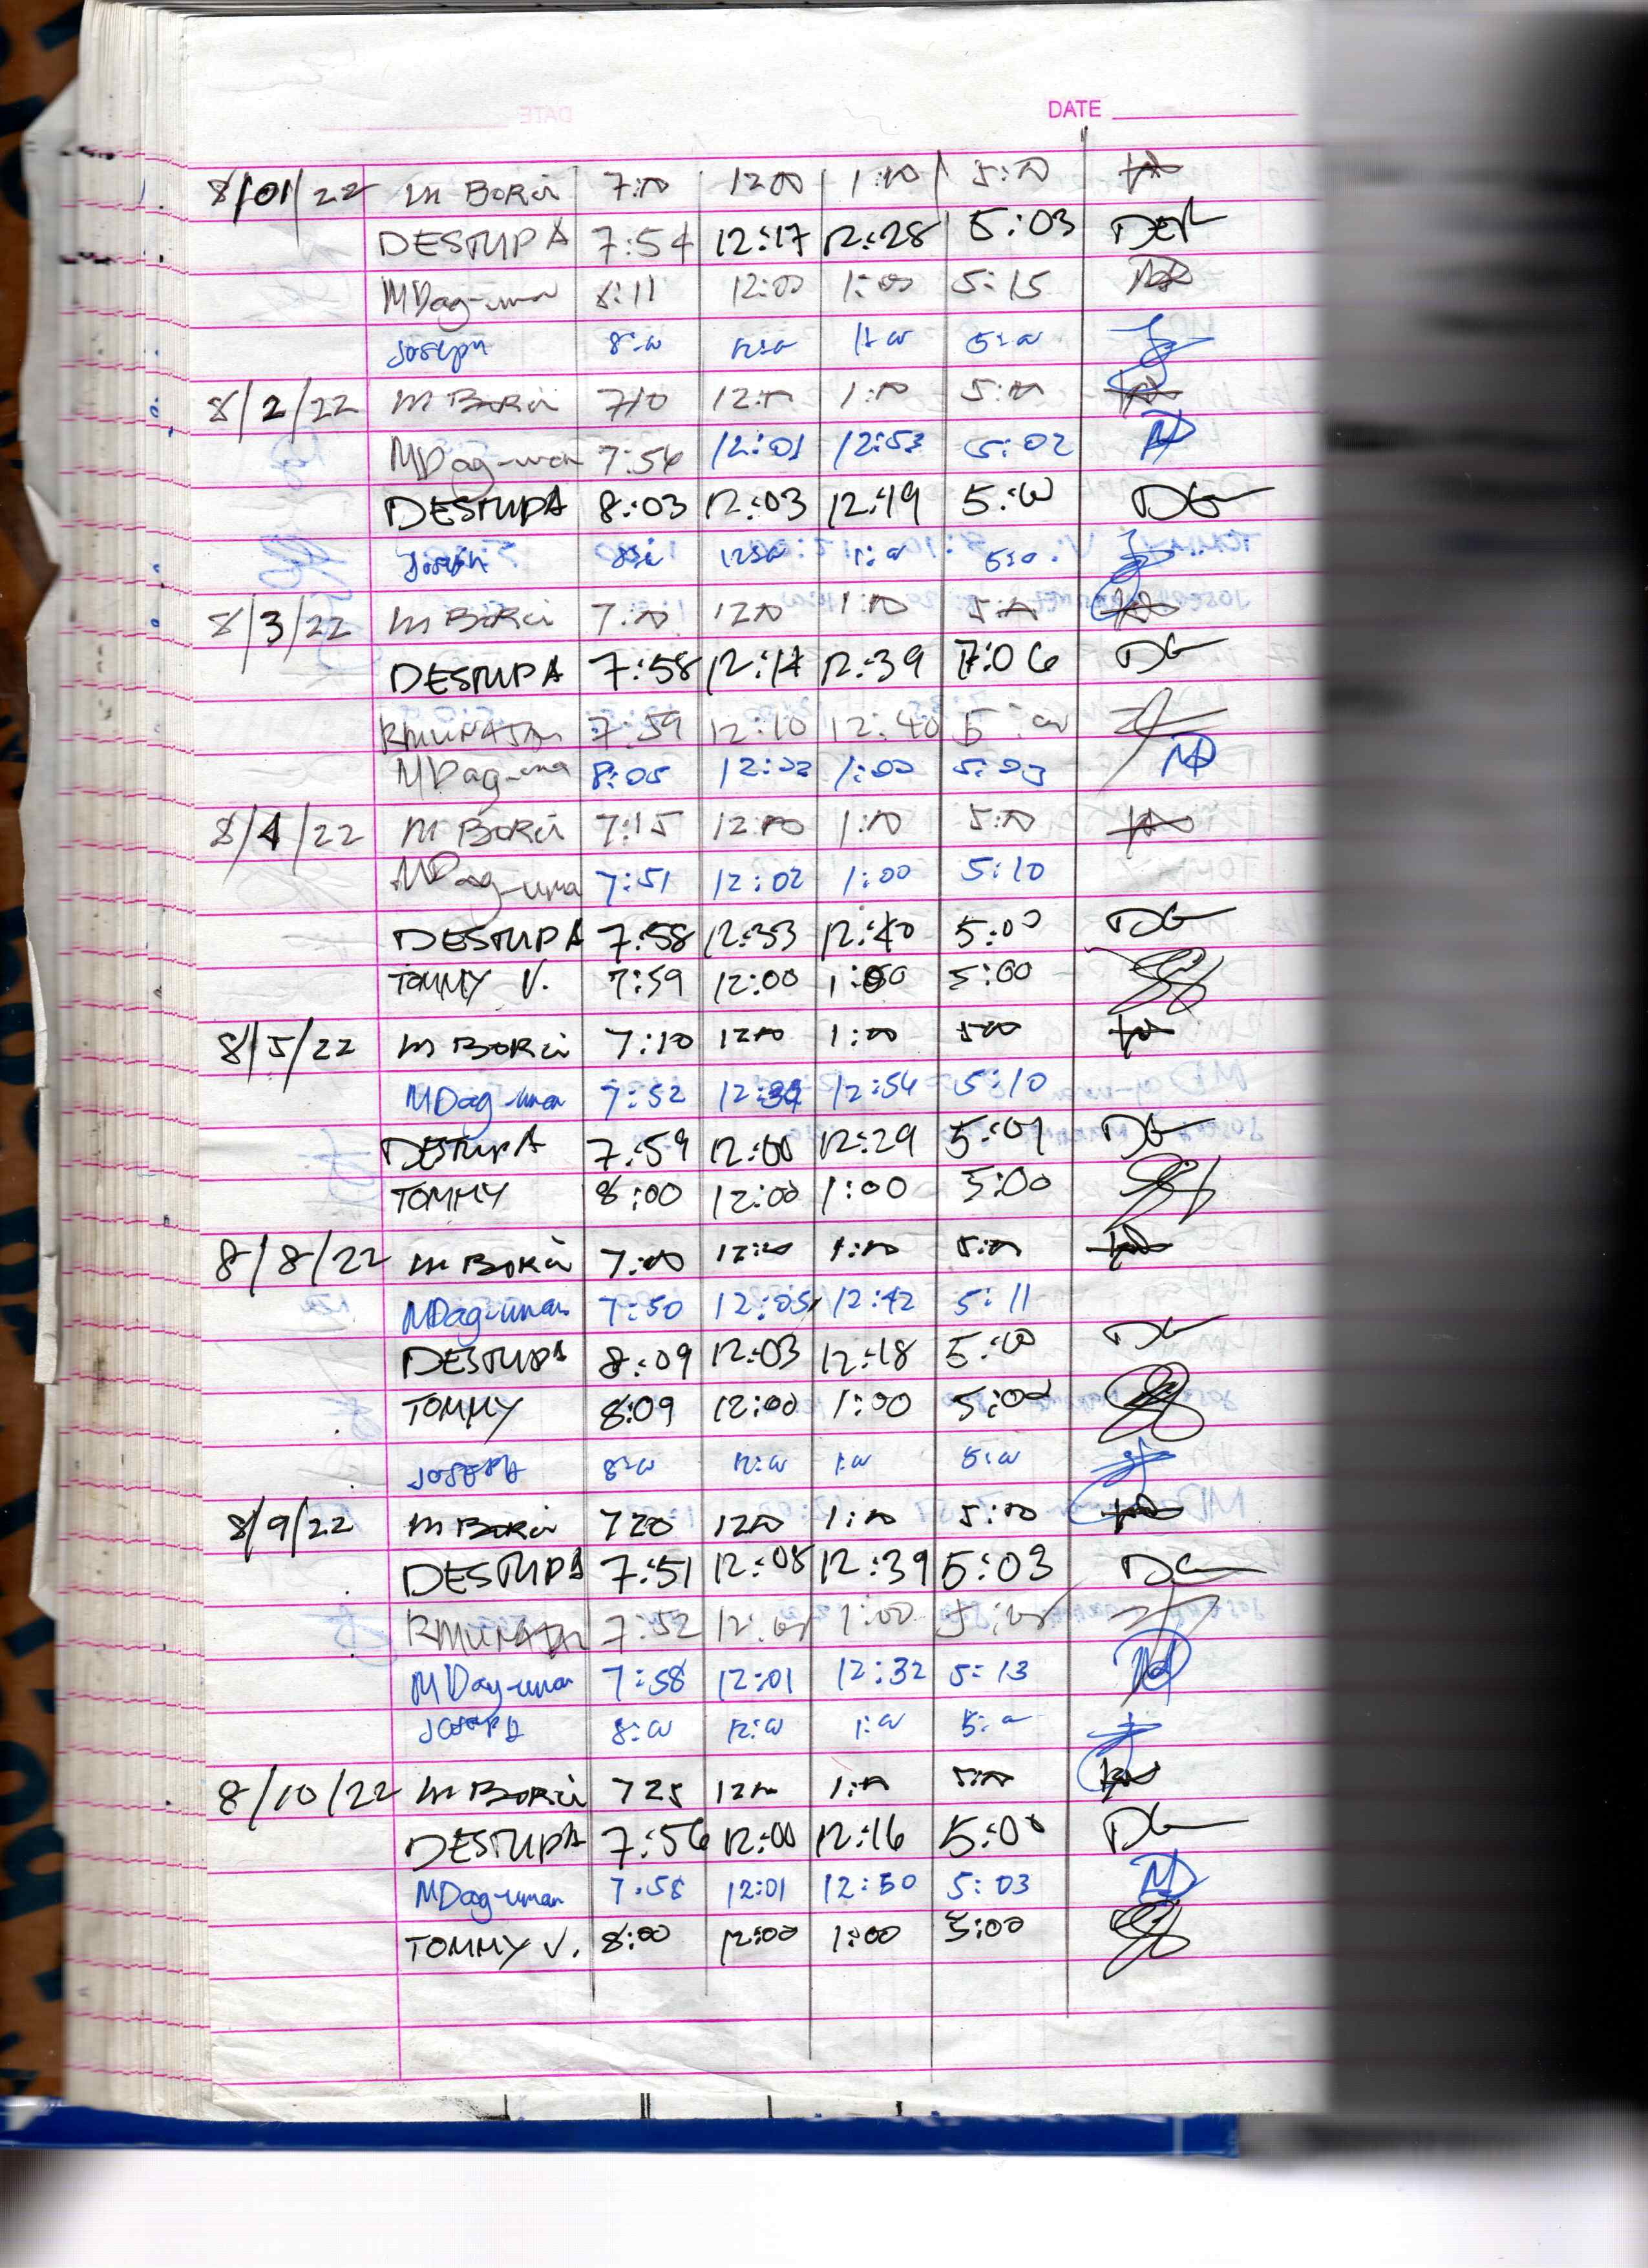 DATE
8/01/22 M Borci 7:00 12 00 1:00 5:00
DESTUPA 7:54 12:17 12:28 5:03
MDag-uman 8:11 12:00 1:00 5:15
Joseph 8:00 12:00 1:00 5:00
8/2/22 M Borci 710 12:00 1:00 5:00
MDag-uman 7:56 12:01 12:53 5:02
DESTUPA 8:03 12:03 12:49 5:00
Joseph 12:00 1:00 5:00
8/3/22 M Borci 7:00 1200 1:00 5:00
DESTUPA 7:58 12:17 12:39 7:06
7:59 12:10 12:40 5:00
MDag-uman 8:05 12:02 1:00 5:03
8/4/22 M Borci 7:15 12:00 1:00 5:00
MDag-uman 7:51 12:02 1:00 5:10
DESTUPA 7:58 12:33 12:40 5:00
TOMMY V. 7:59 12:00 1:00 5:00
8/5/22 M Borci 7:10 1200 1:00 500
MDag-uman 7:52 12:54 5:10
DESTUPA 7:59 12:00 12:29 5:01
TOMMY 8:00 12:00 1:00 5:00
8/8/22 M Borci 7:00 12:00 1:00 5:00
MDag-uman 7:50 12:05 12:42 5:11
DESTUPA 8:09 12:03 12:18 5:00
TOMMY 8:09 12:00 1:00 5:00
JOSEPH 8:00 12:00 1:00 5:00
8/9/22 M Borci 720 1200 1:00 5:00
DESTUPA 7:51 12:08 12:39 5:03
7:52 1:00
MDag-uman 7:58 12:01 12:32 5:13
JOSEPH 8:00 12:00 1:00 5:00
8/10/22 M Borci 725 1200 1:00 5:00
DESTUPA 7:56 12:00 12:16 5:00
MDag-uman 7:58 12:01 12:50 5:03
TOMMY V. 8:00 12:00 1:00 5:00